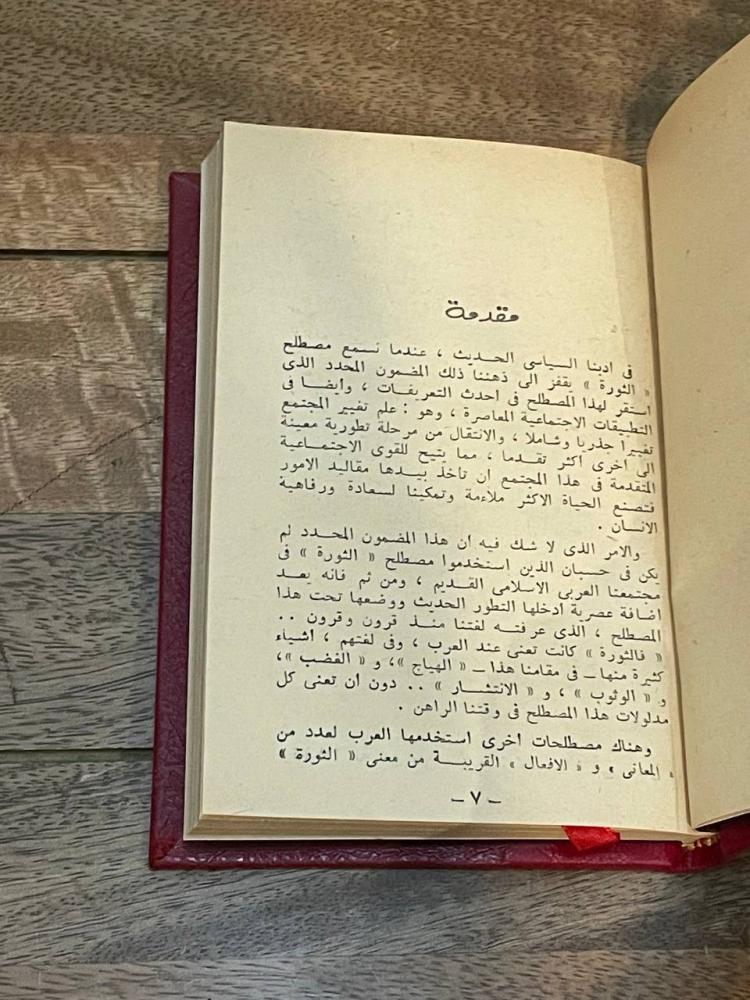 مقدمة
فى ادبنا السياسى الحديث ، عندما نسمع مصطلح
« الثورة » يقفز الى ذهننا ذلك المضمون المحدد الذى
استقر لهذا المصطلح فى احدث التعريفات ، وايضا فى
التطبيقات الاجتماعية المعاصرة ، وهو : علم تغيير المجتمع
تغييرا جذريا وشاملا ، والانتقال من مرحلة تطورية معينة
الى اخرى اكثر تقدما ، مما يتيح للقوى الاجتماعية
المتقدمة فى هذا المجتمع ان تاخذ بيدها مقاليد الامور
فتصنع الحياة الاكثر ملاءمة وتمكينا لسعادة ورفاهية
الانسان .
والامر الذى لا شك فيه ان هذا المضمون المحدد لم
يكن فى حسبان الذين استخدموا مصطلح « الثورة » فى
مجتمعنا العربى الاسلامى القديم ، ومن ثم فانه يعد
اضافة عصرية ادخلها التطور الحديث ووضعها تحت هذا
المصطلح ، الذى عرفته لغتنا منذ قرون وقرون ..
« فالثورة » كانت تعنى عند العرب ، وفى لغتهم ، اشياء
كثيرة منها – فى مقامنا هذا – « الهياج »، و « الغضب »،
و « الوثوب » ، و « الانتشار » .. دون ان تعنى كل
مدلولات هذا المصطلح فى وقتنا الراهن .
وهناك مصطلحات اخرى استخدمها العرب لعدد من
المعانى ، و « الافعال » القريبة من معنى « الثورة »
– ٧ –